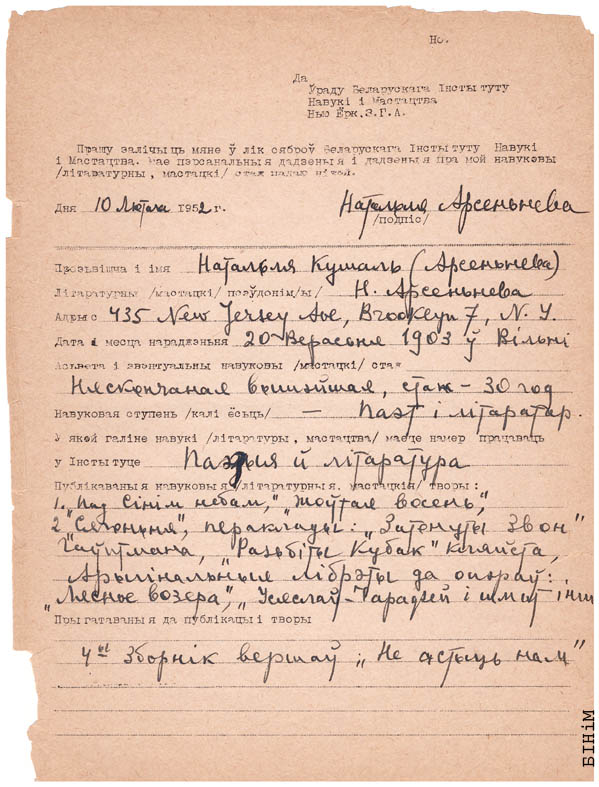 Но.
Да
Ўраду Беларускага Інстытуту
Навукі і Мастацтва
Нью Ёрк. З.Г.А.
Прашу залічыць мяне ў лік сяброў Беларускага Інстытуту Навукі
і Мастацтва. Мае пэрсанальныя дадзеныя і дадзеныя пра мой навуковы
/літаратурны, мастацкі/ стаж падаю ніжэй.
Дня 10 Лютага 1952 г. Наталля Арсеньнева
/подпіс/
Прозьвішча і імя Наталля Кушаль (Арсеньнева)
Літаратурны /мастацкі/ псэўдонім/ы/ Н. Арсеньнева
Адрыс 435 New Jersey Ave, Brooklyn 7, N. Y.
Дата і месца нараджэньня 20 Верасьня 1903 ў Вільні
Асьвета і эвэнтуальны навуковы /мастацкі/ стаж
Няскончаная вышэйшая, стаж - 30 год
Навуковая ступень /калі ёсьць/ — Паэт і літаратар.
У якой галіне навукі /літаратуры, мастацтва/ маеце намер працаваць
у Інстытуце Паэзыя й літаратура
Публікаваныя навуковыя /літаратурныя, мастацкія/ творы:
1. „Пад Сінім небам," „Жоўтая восень,"
2 „Сягоньня", пераклады: „Затонуты Звон"
Гаўптмана, „Разьбіты Кубак" Кляйста,
Арыгінальныя лібрэты да опэраў:
„Лясное возера", „Усяслаў-Чарадзей і шмат інш
Прыгатаваныя да публікацыі творы
4ы зборнік вершаў „Не астыць нам"
БІНіМ